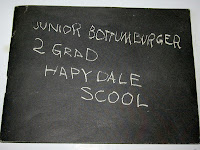 JUNIOR BOTTUMBURGER
2 GRAD
HAPYDALE
SCOOL